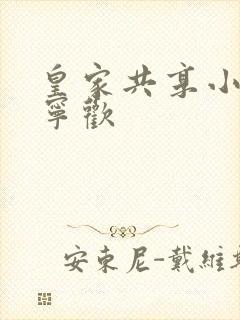 皇家共享小
寧歡
安東尼-戴維斯